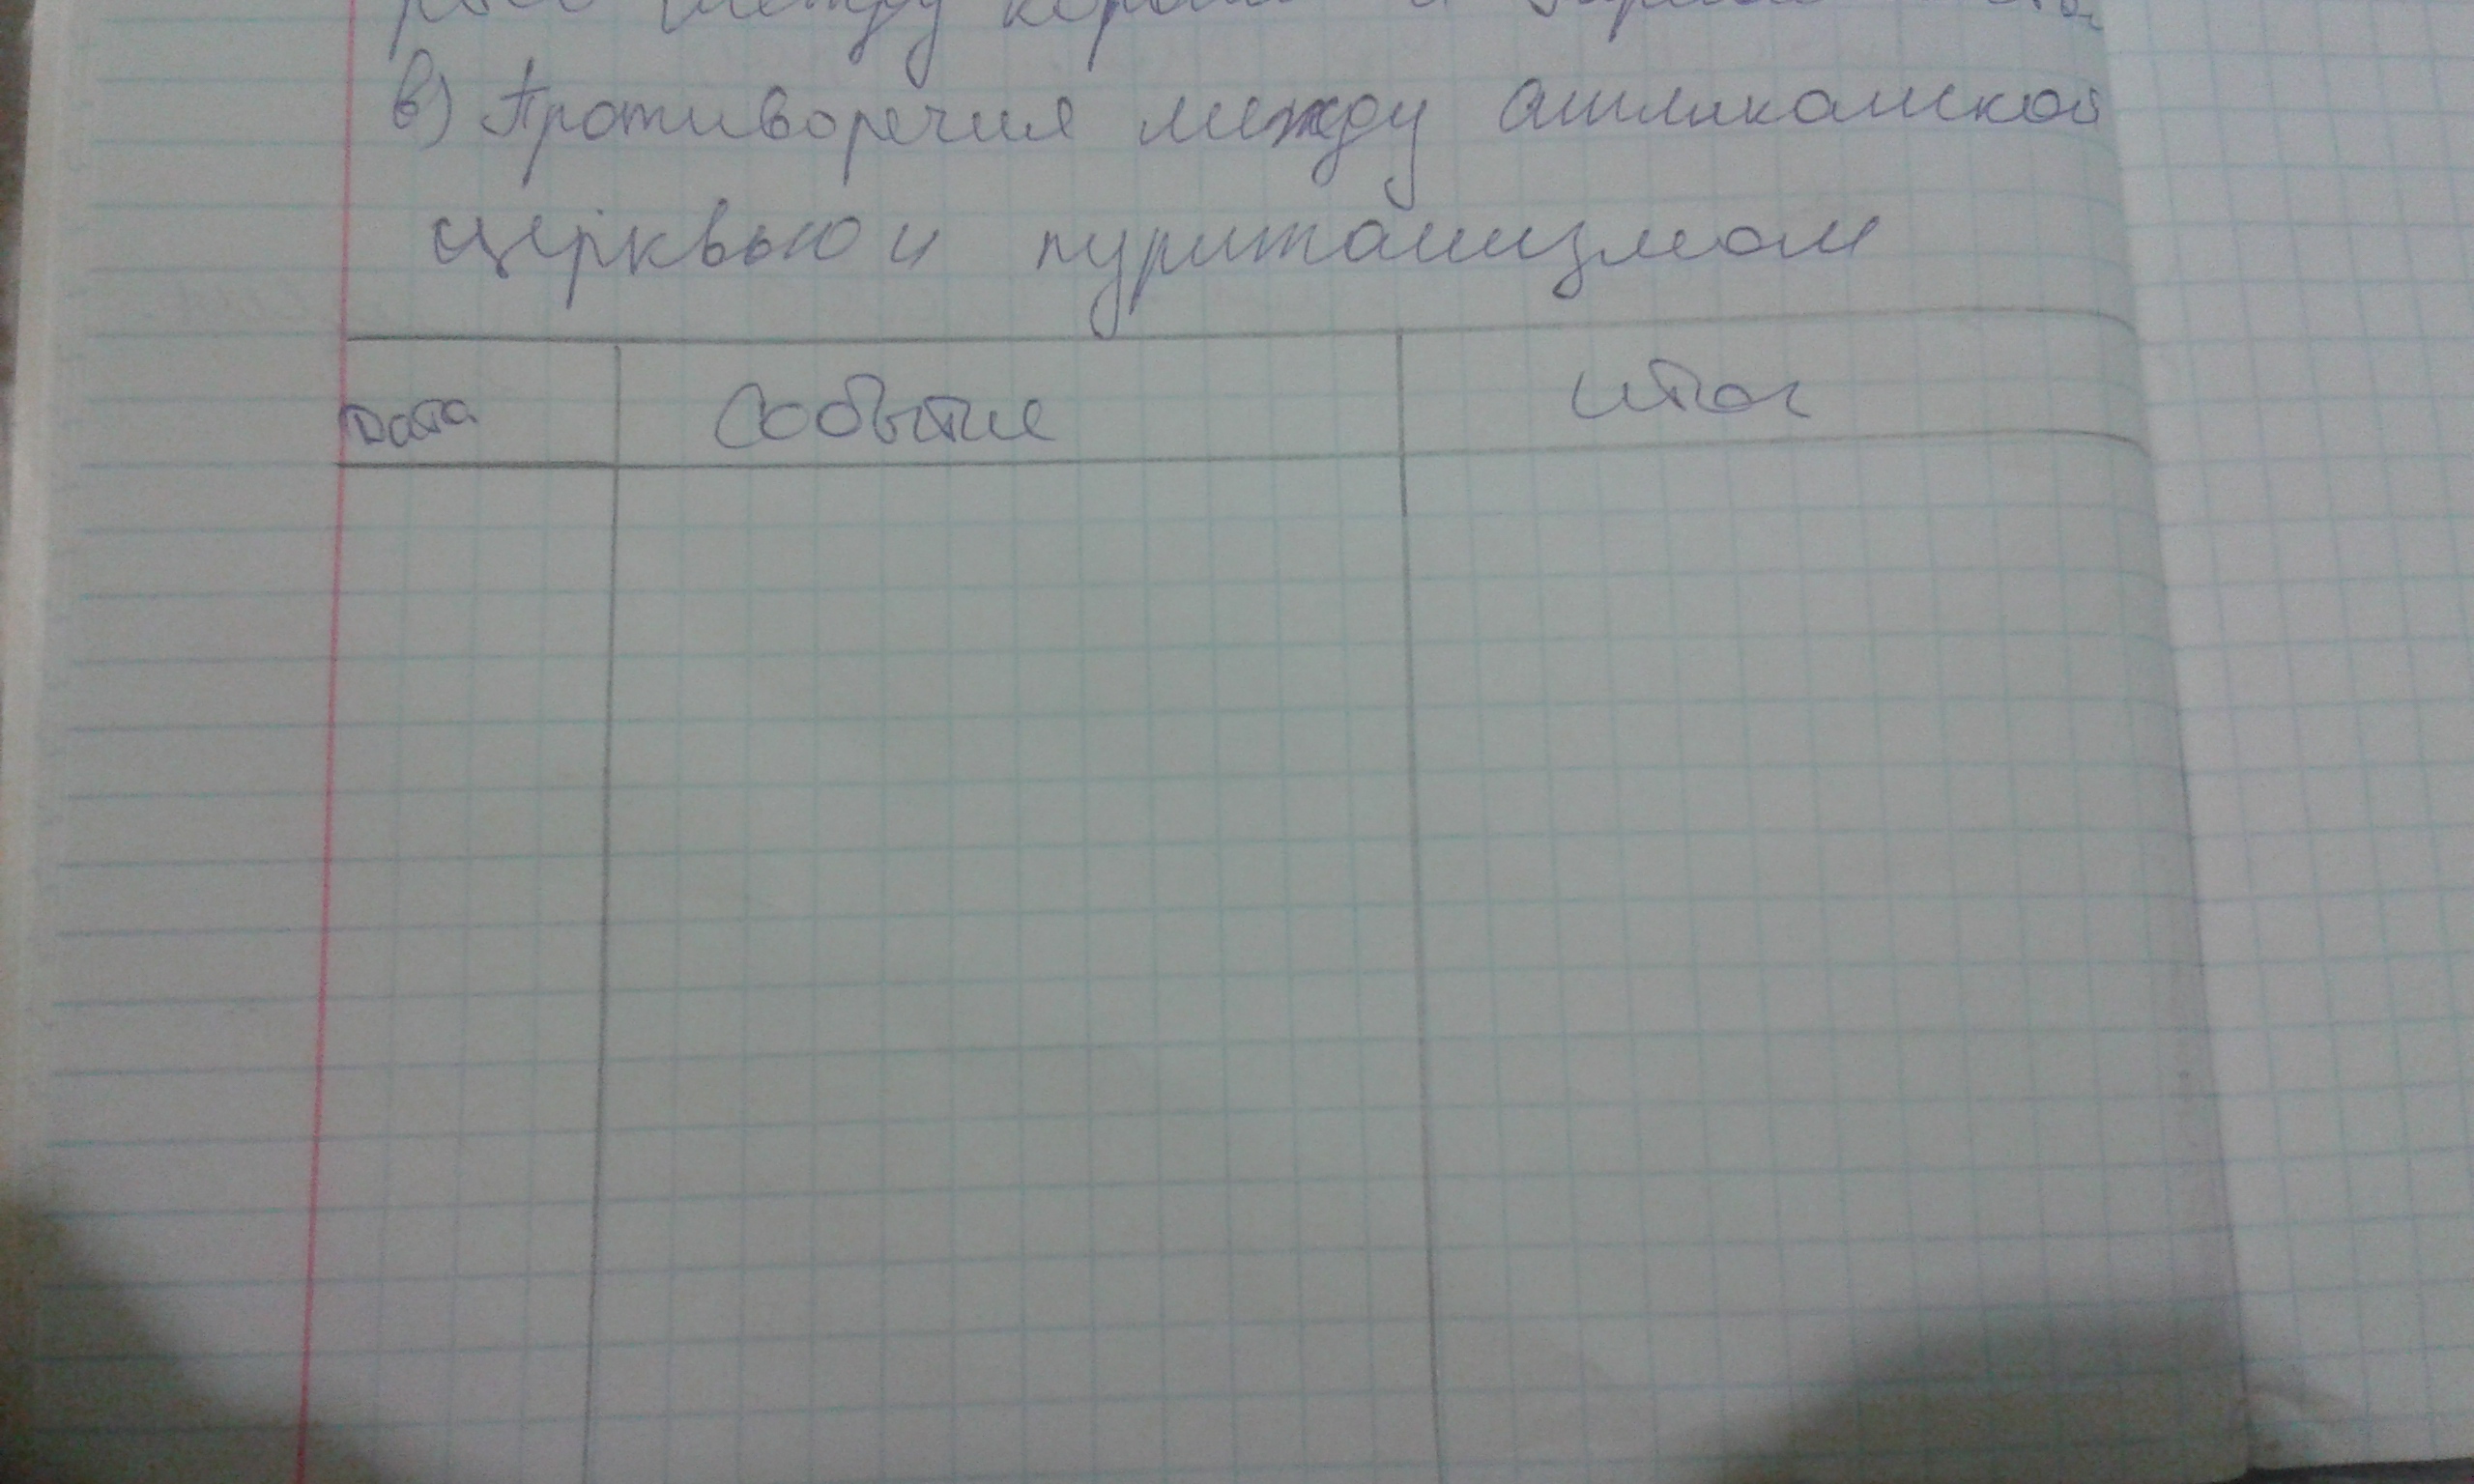 между
в) Противоречия между англиканской
церквью и пуританизмом
Дата Событие Итог